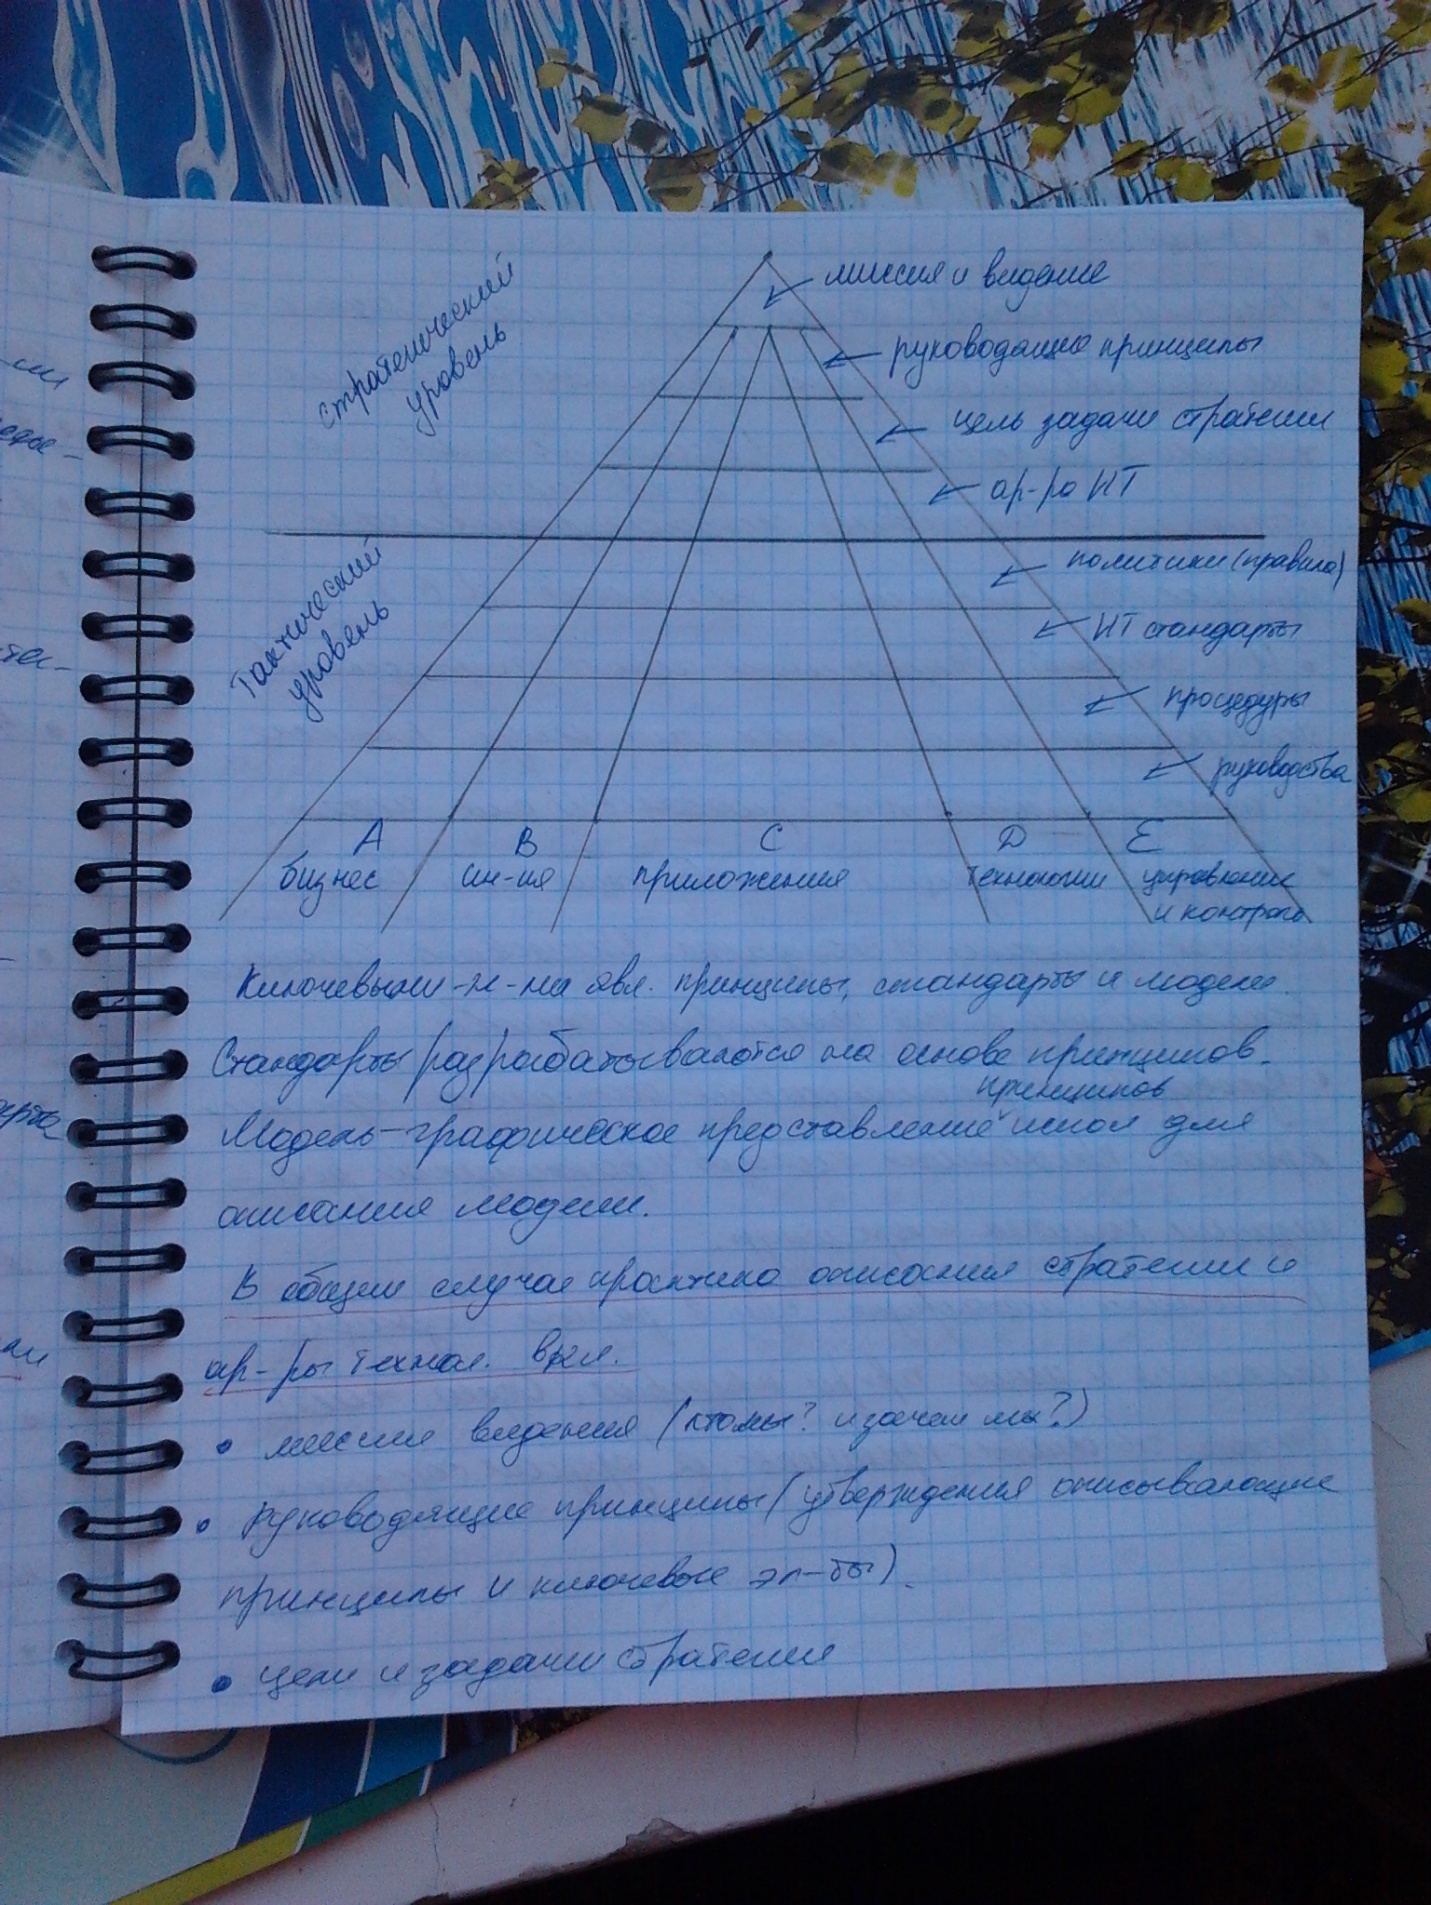 стратегический
уровень
миссия и видение
руководящие принципы
цель задачи стратегии
ар-ра ИТ
Тактический
уровень
политики (правила)
ИТ стандарты
процедуры
руководства
A B C D E
бизнес ин-ия приложения технологии управление
и контроль
Ключевыми явл. принципы, стандарты и модели.
Стандарты разрабатываются на основе принципов.
принципов
Модель - графическое представление испол для
описания модели.
В общем случае практика описания стратегии и
ар-ры технол. вкл.
• миссии видения (кто мы? и зачем мы?)
• руководящие принципы (утверждения описывающие
принципы и ключевые эл-ты).
• цели и задачи стратегии